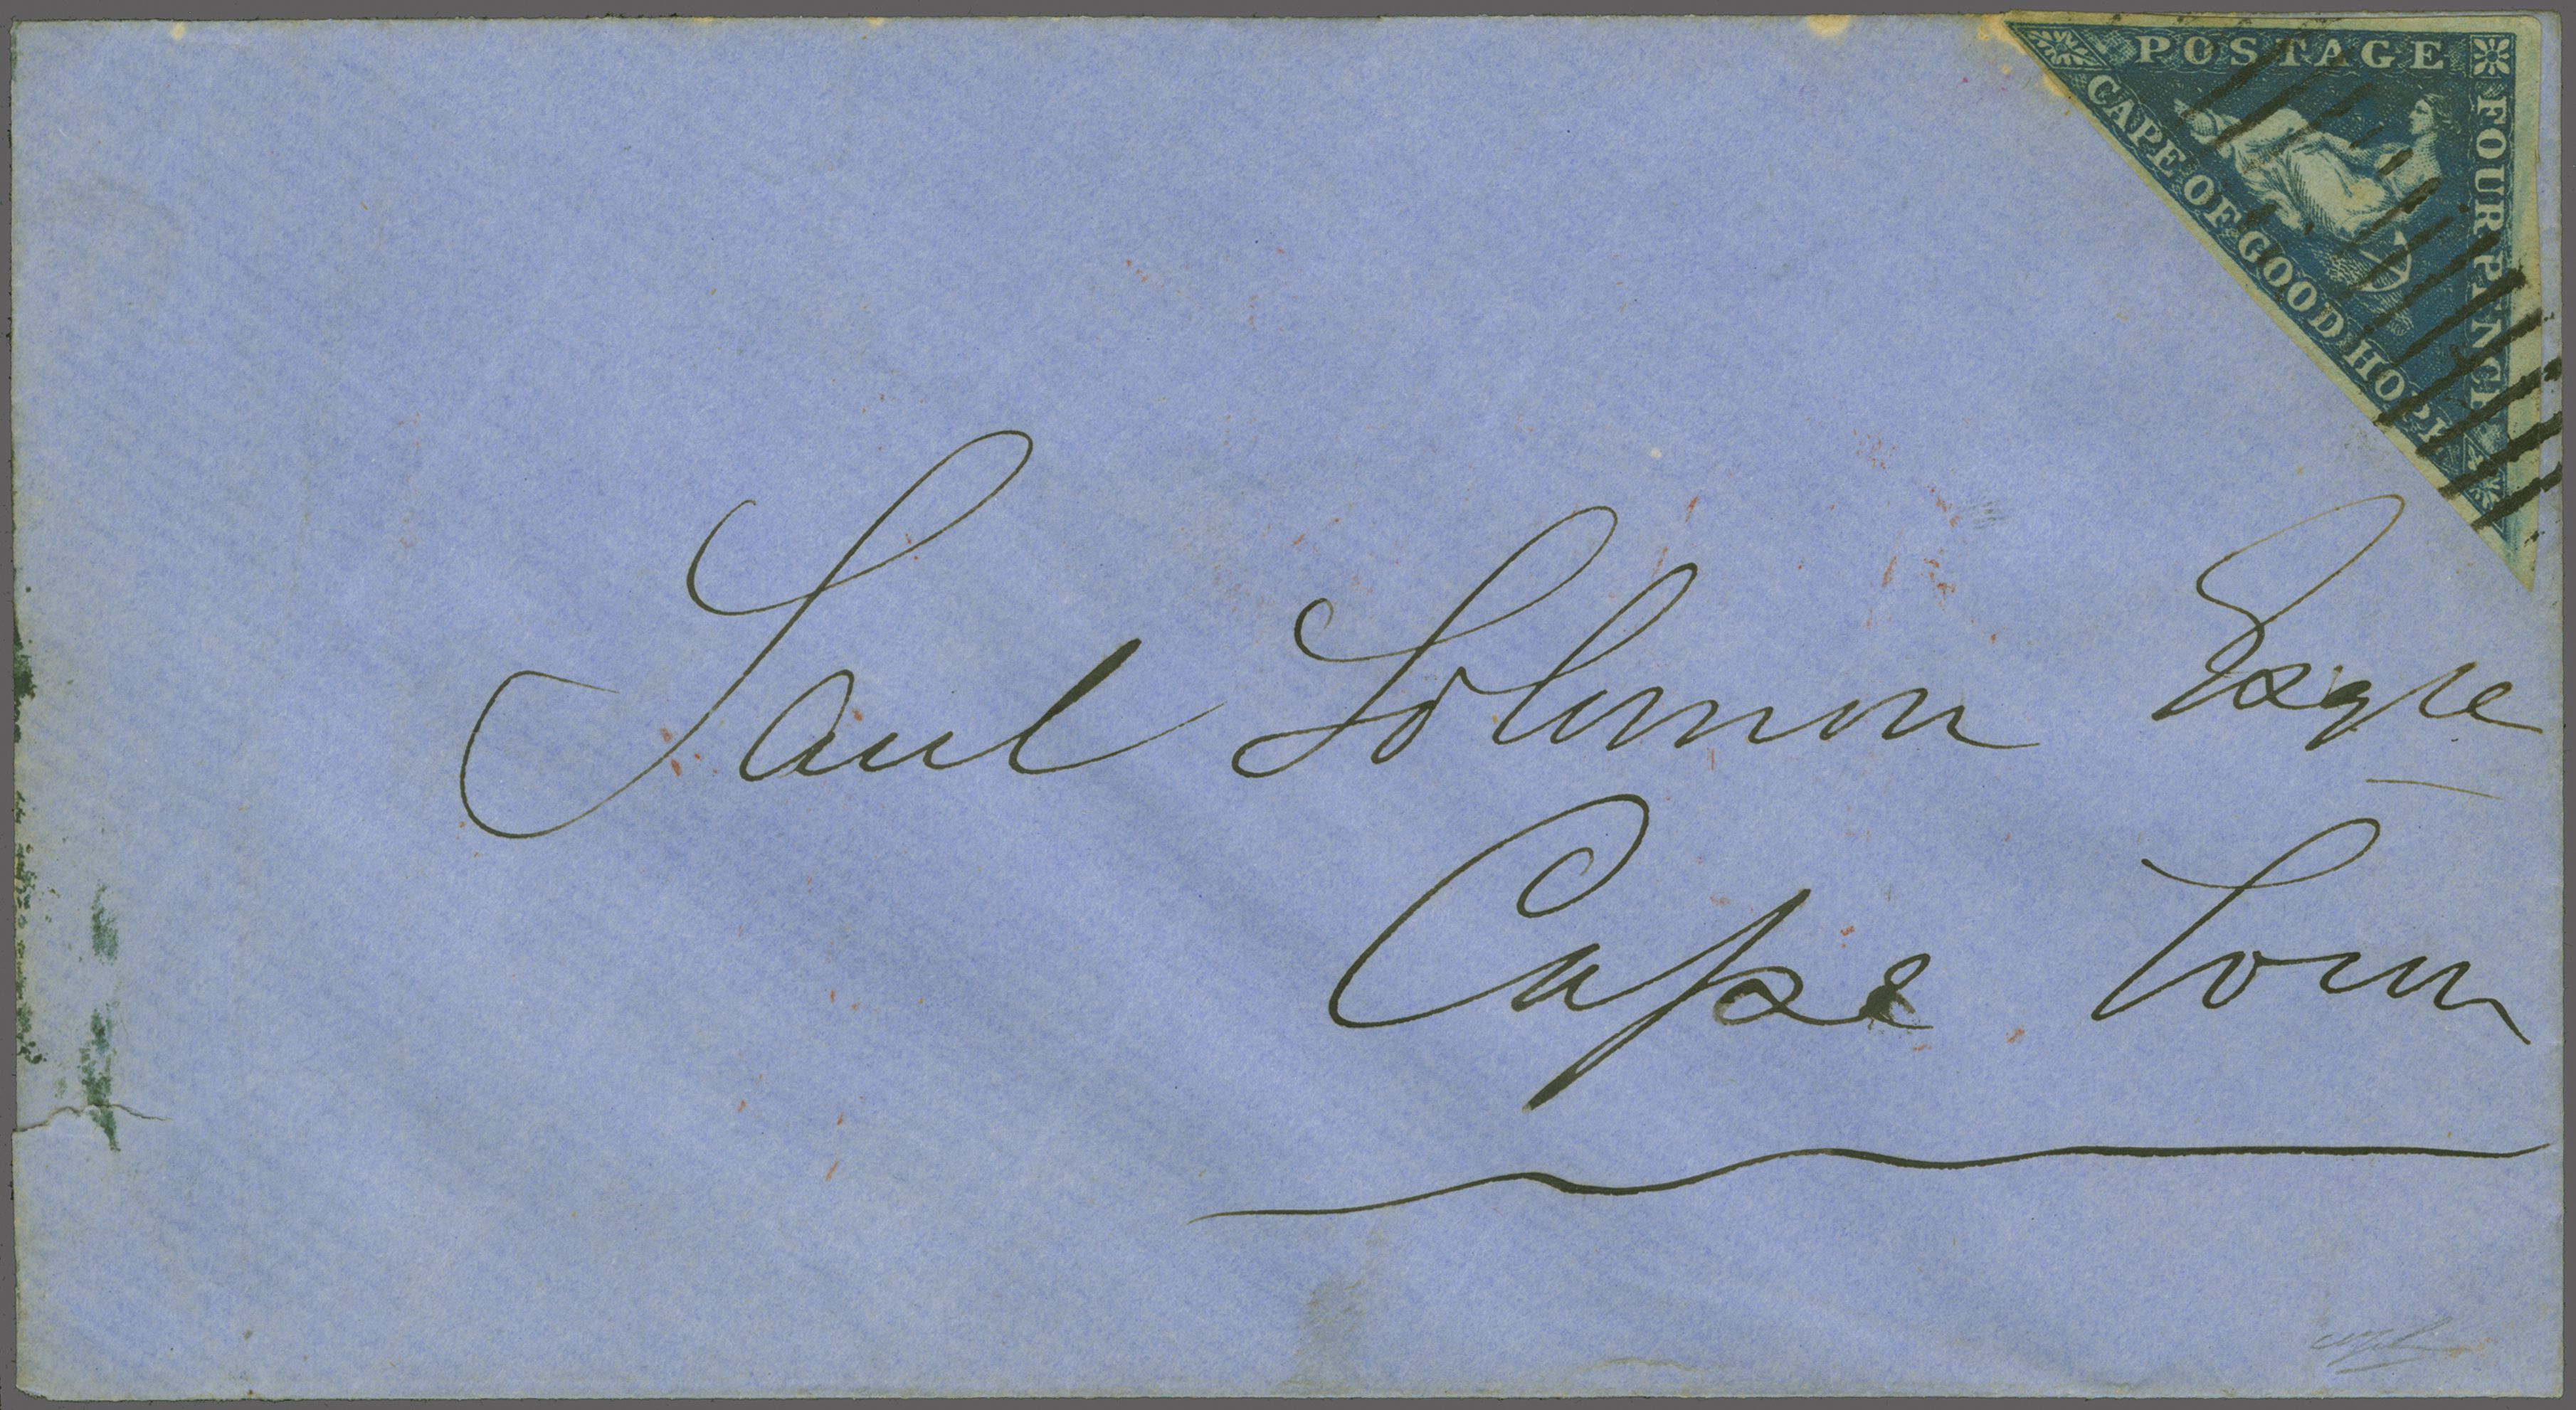 POSTAGE
FOUR PENCE
CAPE OF GOOD HOPE
Saul Solomon Esqre
Cape Town